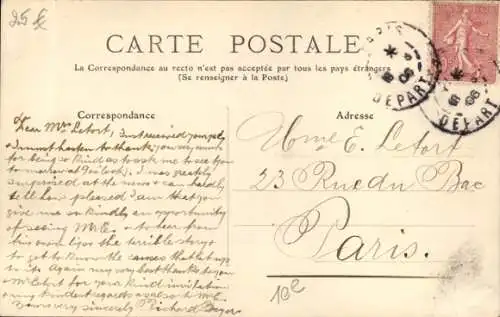 25 €
CARTE POSTALE
La Correspondance au recto n'est pas acceptée par tous les pays étrangers
(Se renseigner à la Poste)
Correspondance
Adresse
PARIS
DEPART
DEPART
Dear Mrs Letort, I
I must hasten to thank you very much
for being so kind as to ask me to see you
to-morrow at I was greatly
surprised at the news & can hardly
tell how pleased I am that you
give me so kindly an opportunity
of seeing & to hear from
his own lips the terrible story &
to get to know the
to it. Again my very best thanks to you
Letort for your kind invitation
my kindest regards
Yours very sincerely Richard
Mme E. Letort
23 Rue du Bac
Paris.